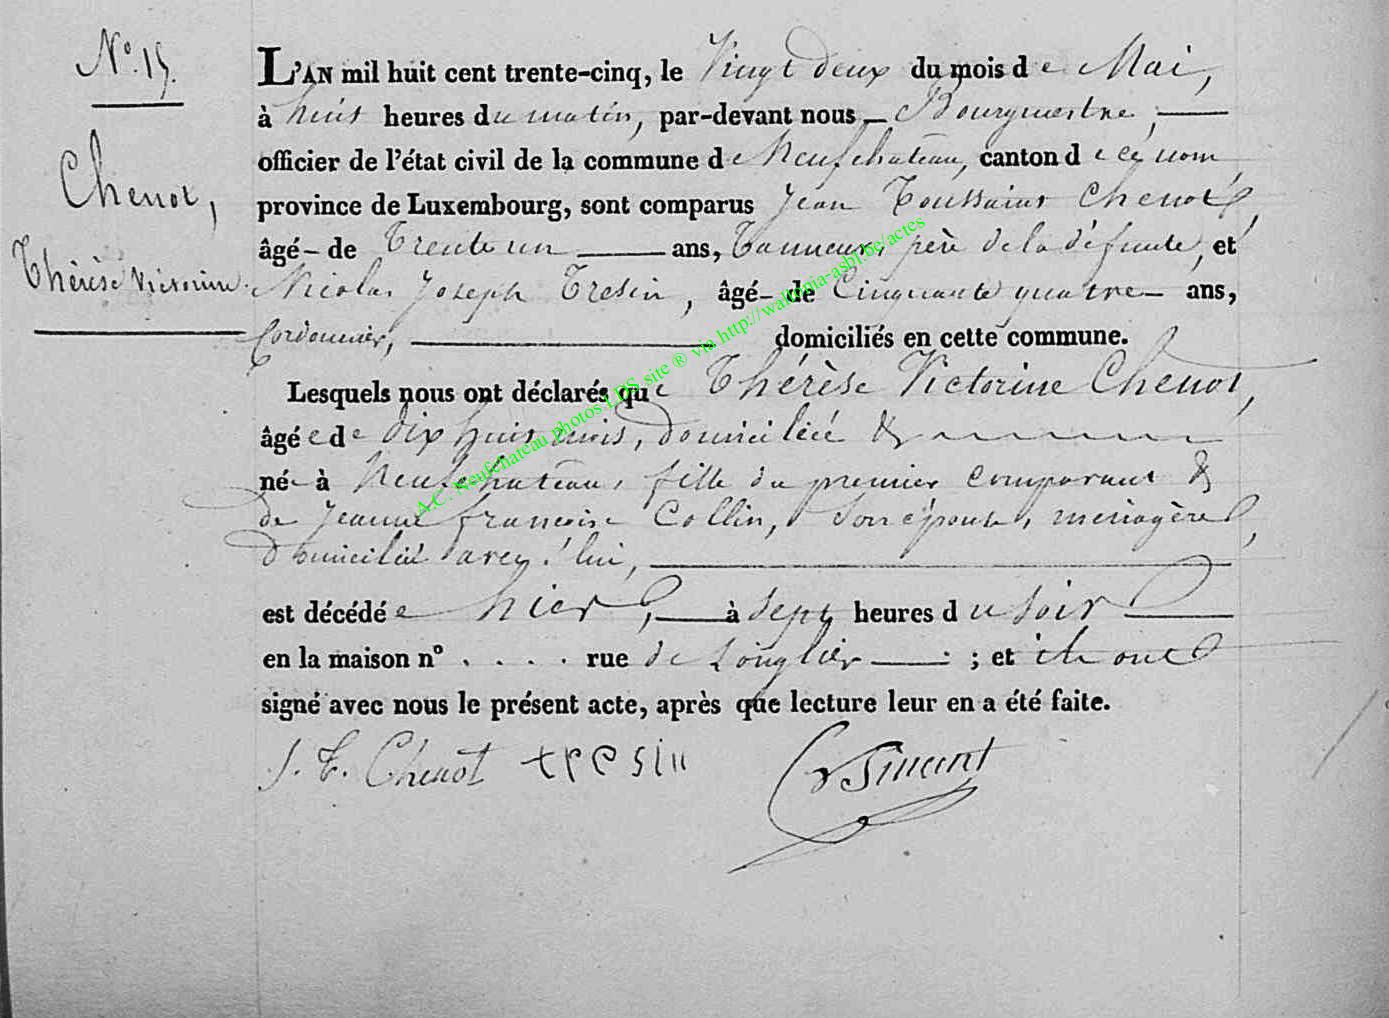 N° 15.
Chenot,
Thérèse Victorine.
L'AN mil huit cent trente-cinq, le Vingt deux du mois de Mai,
à huit heures du matin, par-devant nous Bourgmestre,
officier de l'état civil de la commune de Neufchateau, canton de ce nom,
province de Luxembourg, sont comparus Jean Toussaint Chenot,
âgé de Trente un ans, Tanneur, père de la défunte, et
Nicolas Joseph Tresin, âgé de Cinquante quatre ans,
Cordonnier, domiciliés en cette commune.
Lesquels nous ont déclarés que Thérèse Victorine Chenot,
âgée de dix huit mois, domiciliée &
née à Neufchateau, fille du premier comparant &
de Jeanne françoise Collin, Son épouse, ménagère,
domiciliée avec lui,
est décédée hier, à Sept heures du Soir
en la maison n° . . . . rue de Longlier ; et ils ont
signé avec nous le présent acte, après que lecture leur en a été faite.
J. T. Chenot tresin
A.C. Neufchateau photos LDS site ® via http://wallonia-asbl.be/actes